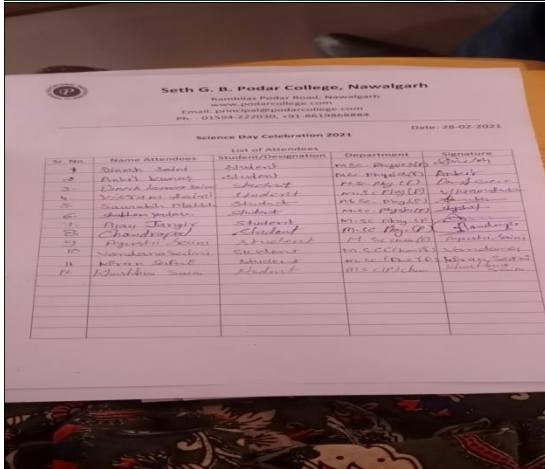 Seth G. B. Podar College, Nawalgarh
Rambilas Podar Road, Nawalgarh
www.podarcollege.com
Email: principal@podarcollege.com
Ph. - 01594-222030, +91-8619868884
Date: 28-02-2021
Science Day Celebration 2021
List of Attendees
Sr. No. Name Attendees Student/Designation Department Signature
1 Dinesh Saini Student M.Sc. Physics(P)
2 Ankit Kumar Student M.Sc. Physics(P) Ankit
3. Dinesh Kumar Saini Student M.Sc. Phy.(P)
4. Student M.Sc. Phy(P)
5. Saurabh Student M.Sc. Phy(P)
6. Student M.Sc. Phys(P)
7. Ajay Jangir Student M.Sc. Phy.(P)
8. Chandrapal Student M.Sc Phy.(P)
9 Ayushi Saini Student M.Sc Ayushi Saini
10 Vandana Saini Student M.Sc Vandana
11 Kiran Saini Student M.Sc Kiran Saini
12 Khushbu Saini Student M.Sc Khushbu Saini